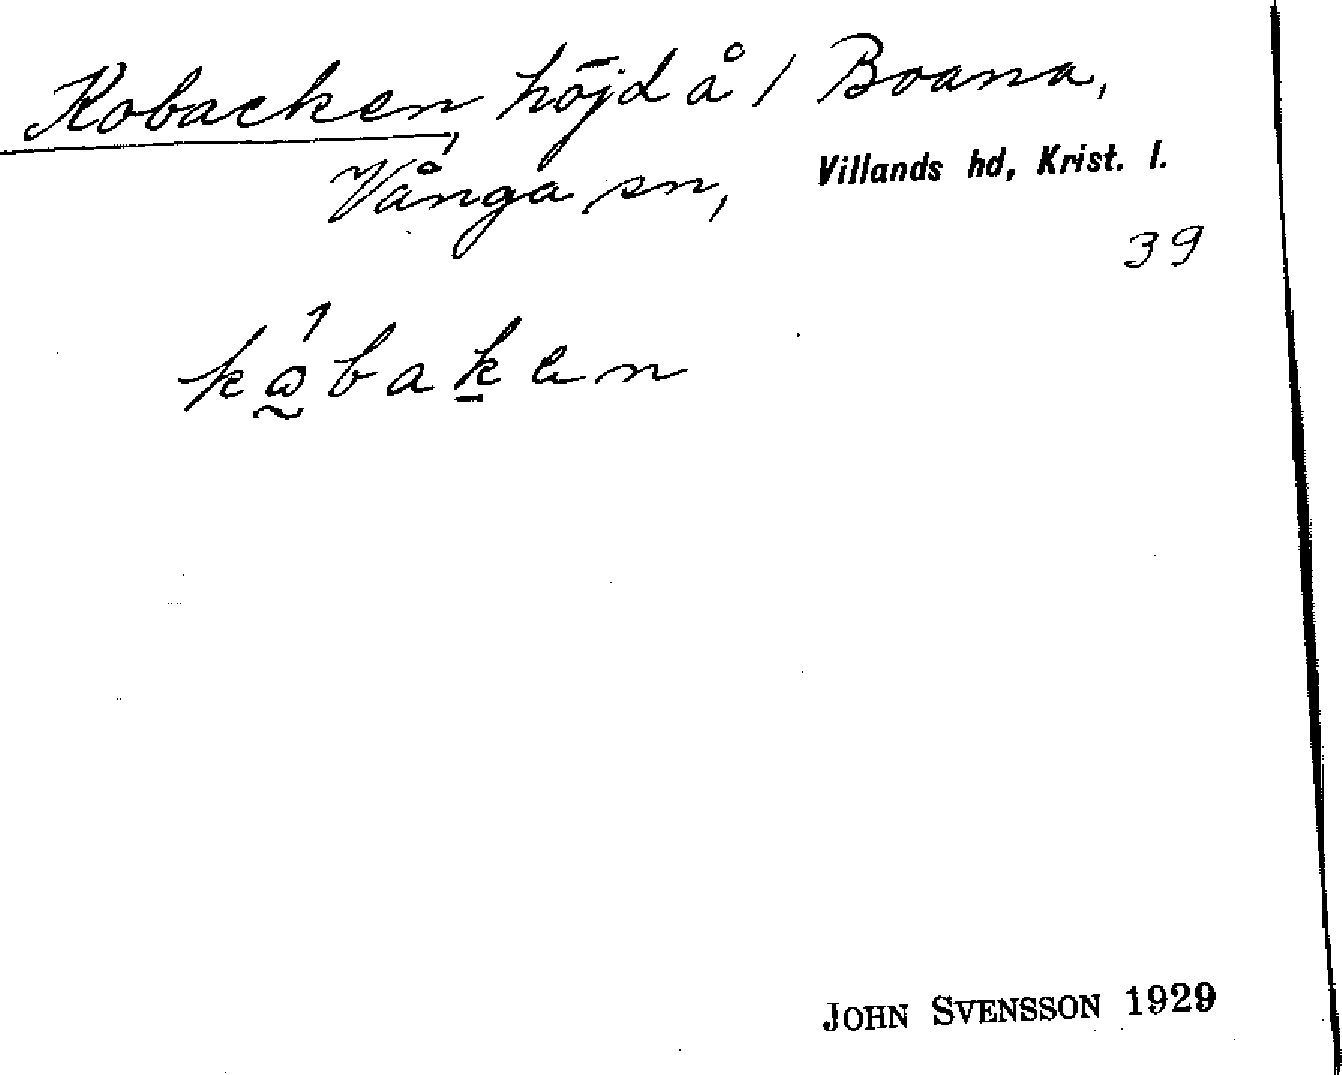 Kobacken, höjd å 1 Boana,
Vånga sn, Villands hd, Krist. l.
39
kώ̰bak̲en
JOHN SVENSSON 1929